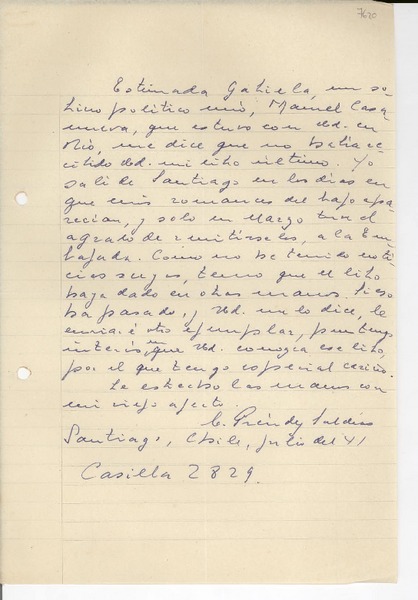 7620
Estimada Gabriela, un so-
brino político mío, Manuel Casa-
nueva, que estuvo con Ud. en
Río, me dice que no había re-
cibido Ud. mi libro último. Yo
salí de Santiago en los días en
que mis romances del bajo apa-
recían, y solo en Marzo tuve el
agrado de remitírselos, a la Em-
bajada. Como no he tenido noti-
cias suyas, temo que el libro
haya dado en otras manos. Si eso
ha pasado, y Ud. me lo dice, le
enviaré otro ejemplar, pues tengo
interés en que Ud. conozca ese libro,
por el que tengo especial cariño.
Le estrecho las manos con
mi viejo afecto.
C. Préndez Saldías
Santiago, Chile, julio del 41
Casilla 2829.